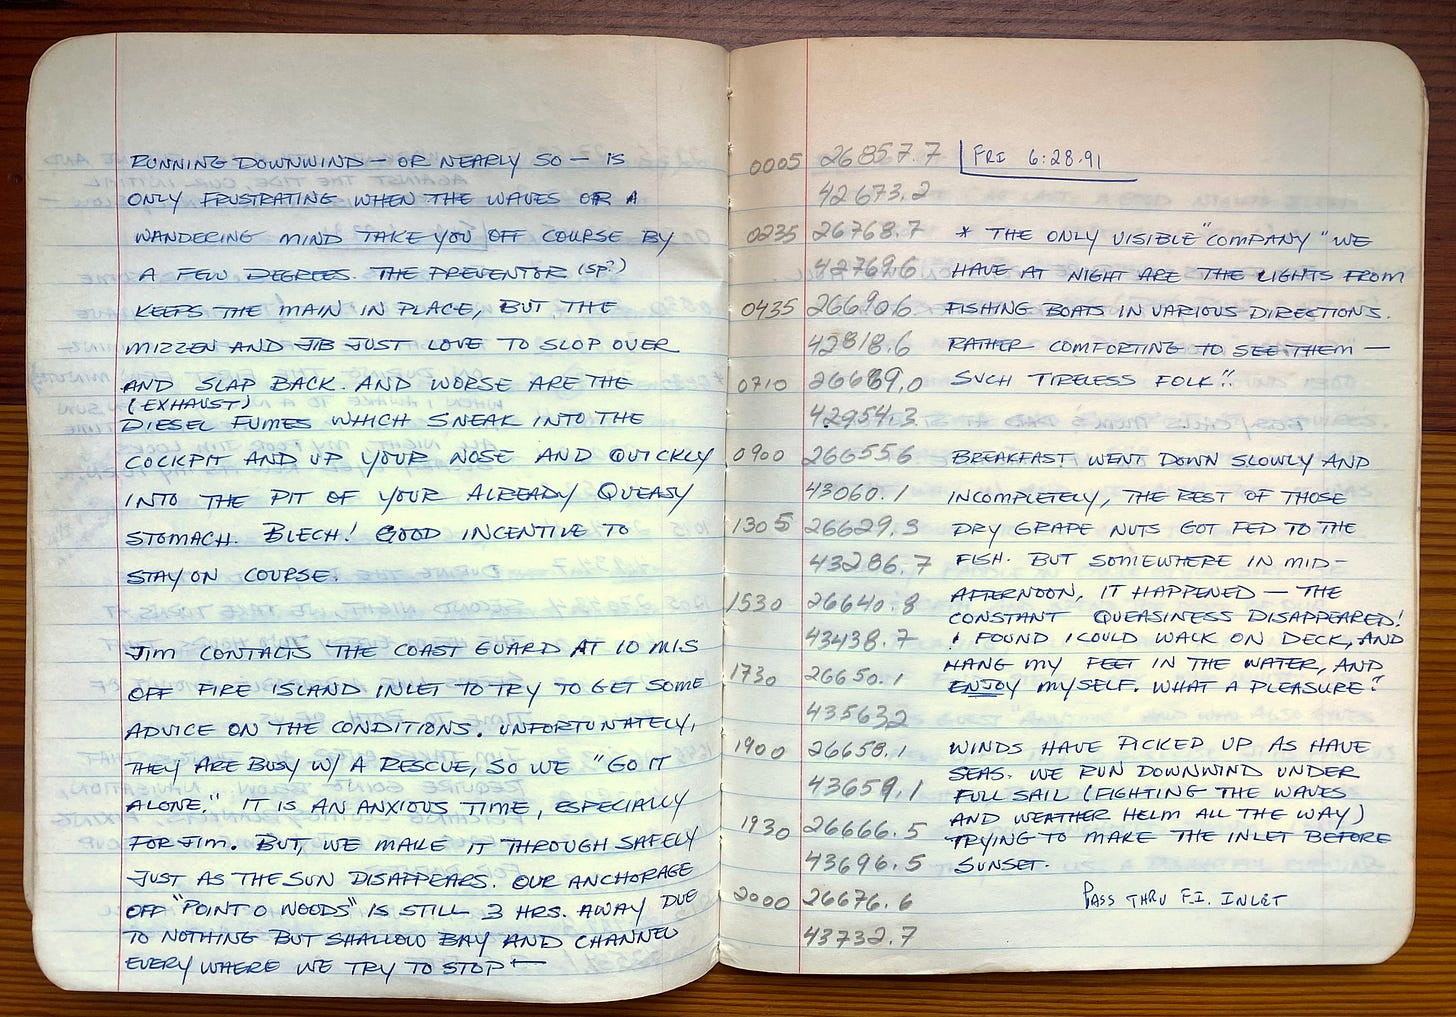 RUNNING DOWNWIND — OR NEARLY SO — IS
ONLY FRUSTRATING WHEN THE WAVES OR A
WANDERING MIND TAKE YOU OFF COURSE BY
A FEW DEGREES. THE PREVENTOR (SP?)
KEEPS THE MAIN IN PLACE, BUT THE
MIZZEN AND JIB JUST LOVE TO SLOP OVER
AND SLAP BACK. AND WORSE ARE THE
(EXHAUST)
DIESEL FUMES WHICH SNEAK INTO THE
COCKPIT AND UP YOUR NOSE AND QUICKLY
INTO THE PIT OF YOUR ALREADY QUEASY
STOMACH. BLECH! GOOD INCENTIVE TO
STAY ON COURSE.
JIM CONTACTS THE COAST GUARD AT 10 MIS
OFF FIRE ISLAND INLET TO TRY TO GET SOME
ADVICE ON THE CONDITIONS. UNFORTUNATELY,
THEY ARE BUSY W/ A RESCUE, SO WE "GO IT
ALONE." IT IS AN ANXIOUS TIME, ESPECIALLY
FOR JIM. BUT, WE MAKE IT THROUGH SAFELY
JUST AS THE SUN DISAPPEARS. OUR ANCHORAGE
OFF "POINT O WOODS" IS STILL 3 HRS. AWAY DUE
TO NOTHING BUT SHALLOW BAY AND CHANNEL
EVERY WHERE WE TRY TO STOP —
0005 26857.7 FRI 6.28.91
42673.2
0235 26768.7 * THE ONLY VISIBLE "COMPANY" WE
42769.6 HAVE AT NIGHT ARE THE LIGHTS FROM
0435 26690.6 FISHING BOATS IN VARIOUS DIRECTIONS.
42818.6 RATHER COMFORTING TO SEE THEM —
0710 26689.0 SUCH TIRELESS FOLK!!
42954.3
0900 26655.6 BREAKFAST WENT DOWN SLOWLY AND
43060.1 INCOMPLETELY, THE REST OF THOSE
1305 26629.3 DRY GRAPE NUTS GOT FED TO THE
43286.7 FISH. BUT SOMEWHERE IN MID-
AFTERNOON, IT HAPPENED — THE
1530 26640.8 CONSTANT QUEASINESS DISAPPEARED!
43438.7 I FOUND I COULD WALK ON DECK, AND
HANG MY FEET IN THE WATER, AND
1730 26650.1 ENJOY MYSELF. WHAT A PLEASURE!!
43563.2
1900 26658.1 WINDS HAVE PICKED UP AS HAVE
SEAS. WE RUN DOWNWIND UNDER
43659.1 FULL SAIL (FIGHTING THE WAVES
AND WEATHER HELM ALL THE WAY)
1930 26666.5 TRYING TO MAKE THE INLET BEFORE
43696.5 SUNSET.
2000 26676.6 PASS THRU F.I. INLET
43732.7